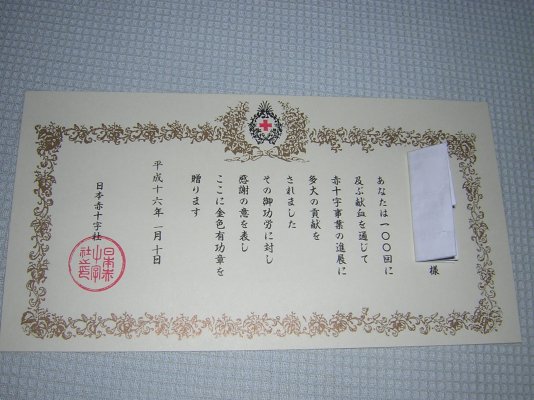 様
あなたは一〇〇回に
及ぶ献血を通じて
赤十字事業の進展に
多大の貢献を
されました
その御功労に対し
感謝の意を表し
ここに金色有功章を
贈ります
平成十六年一月十日
日本赤十字社